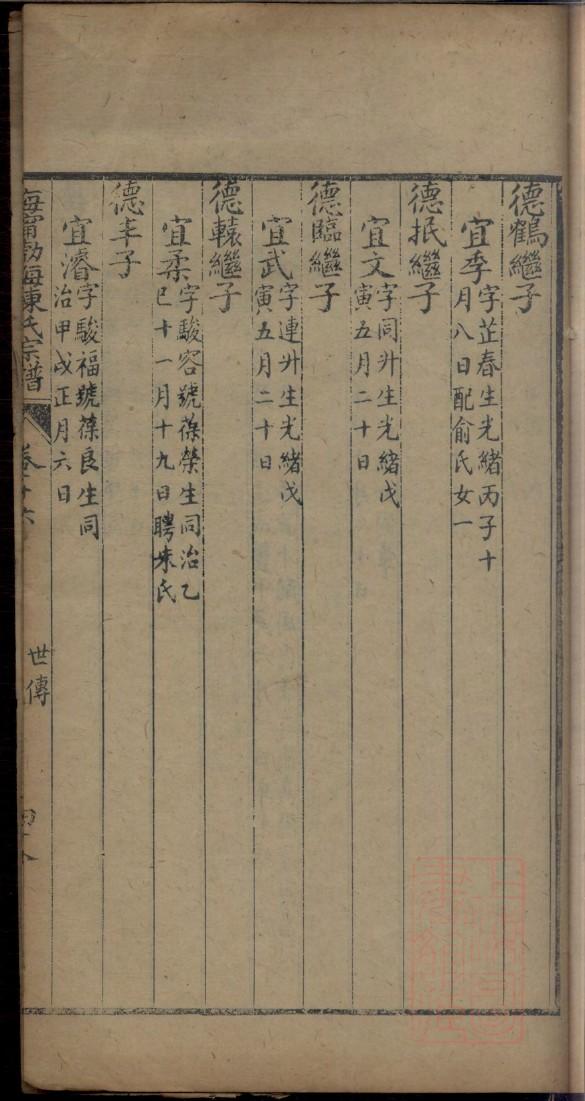 德鶴繼子
宜季字芷春生光緒丙子十
月八日配俞氏女一
德抿繼子
宜文字同升生光緒戊
寅五月二十日
德臨繼子
宜武字連升生光緒戊
寅五月二十日
德轅繼子
宜柔字駿容號葆榮生同治乙
巳十一月十九日聘朱氏
德丰子
宜濬字駿福號葆良生同
治甲戌正月六日
海甯渤海陳氏宗譜
卷十六
世傳